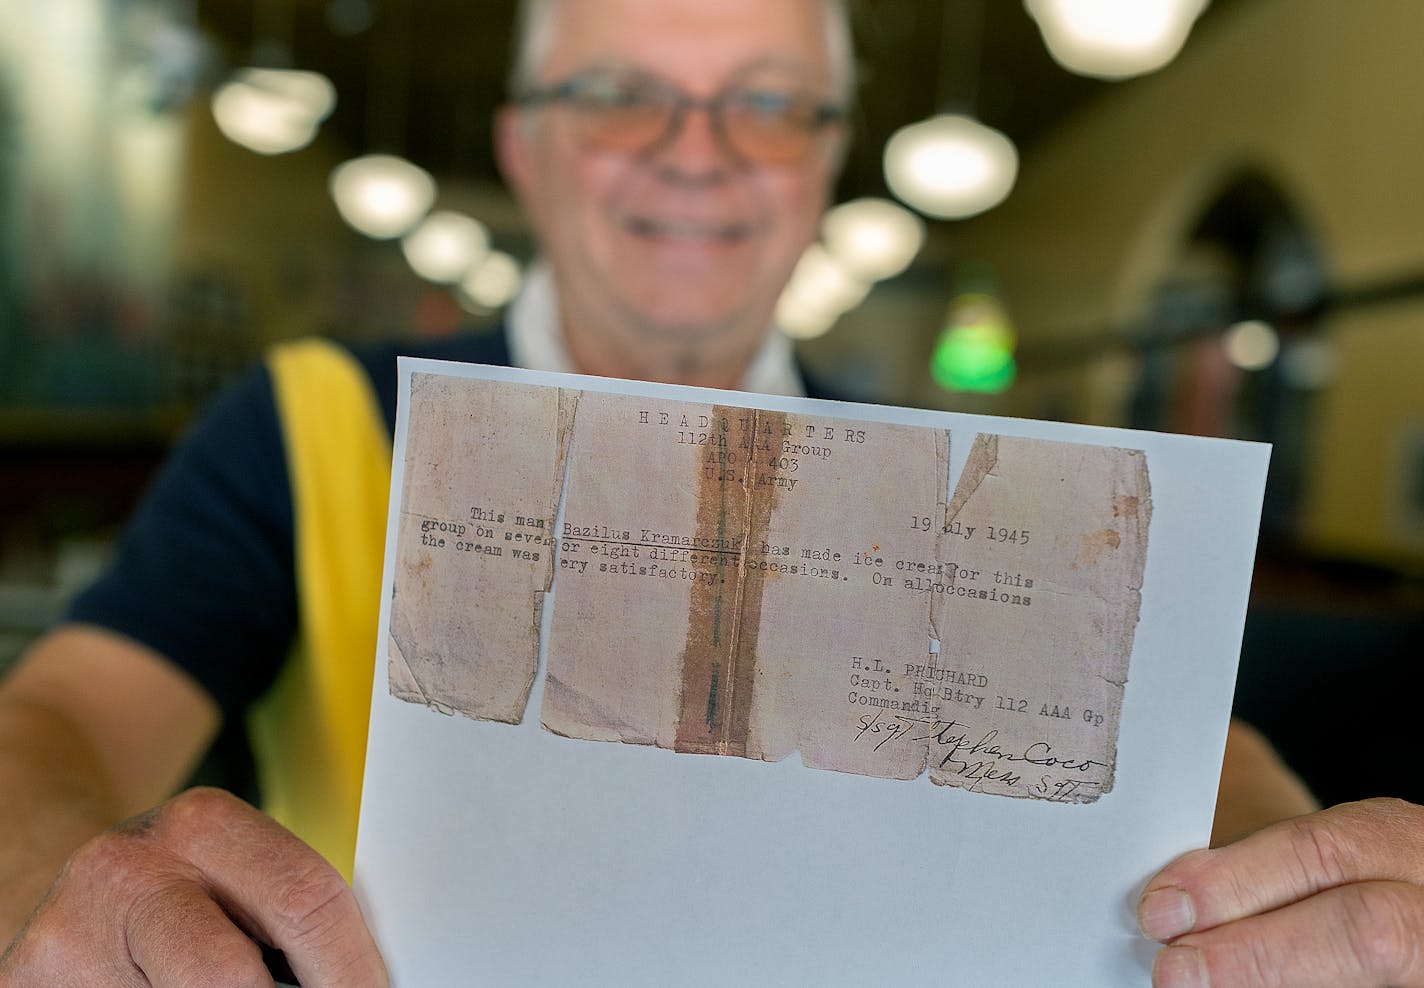 H E A D Q U A R T E R S
112th AAA Group
APO 403
U.S. Army
19 uly 1945
This man Bazilus Kramarczuk has made ice cream for this
group on seve or eight different occasions. On all occasions
the cream was ery satisfactory.
H.L. PRICHARD
Capt. Hq Btry 112 AAA Gp
Commandig
S/Sgt Stephen Coco
Mess Sgt.